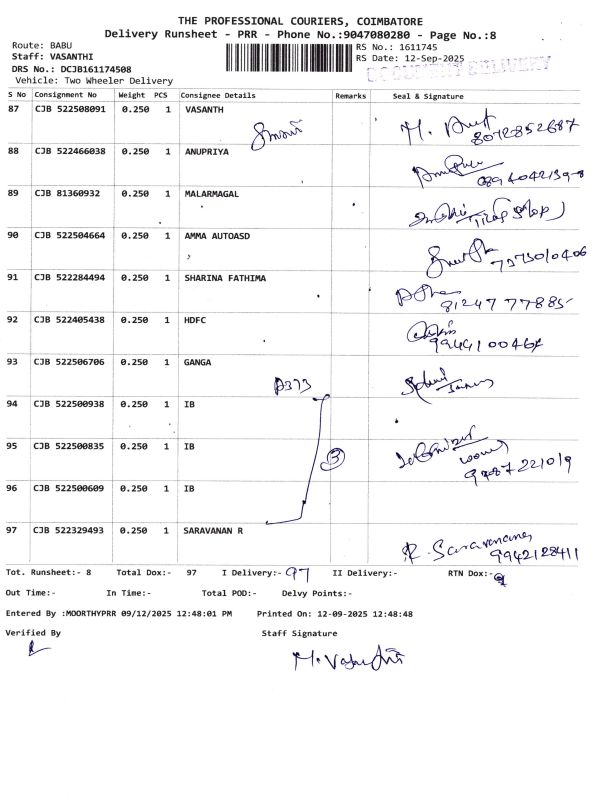 THE PROFESSIONAL COURIERS, COIMBATORE
Delivery Runsheet - PRR - Phone No.:9047080280 - Page No.:8
Route: BABU
Staff: VASANTHI
DRS No.: DCJB161174508
Vehicle: Two Wheeler Delivery
RS No.: 1611745
RS Date: 12-Sep-2025
DOCUMENT DELIVERY
S No Consignment No Weight PCS Consignee Details Remarks Seal & Signature
87 CJB 522508091 0.250 1 VASANTH
8072852687
88 CJB 522466038 0.250 1 ANUPRIYA
89 CJB 81360932 0.250 1 MALARMAGAL
90 CJB 522504664 0.250 1 AMMA AUTOASD
91 CJB 522284494 0.250 1 SHARINA FATHIMA
81247 77885
92 CJB 522405438 0.250 1 HDFC
93 CJB 522506706 0.250 1 GANGA
94 CJB 522500938 0.250 1 IB
95 CJB 522500835 0.250 1 IB
3
96 CJB 522500609 0.250 1 IB
97 CJB 522329493 0.250 1 SARAVANAN R
R. Saravanan
9942128411
Tot. Runsheet:- 8 Total Dox:- 97 I Delivery:- 97 II Delivery:- RTN Dox:-
Out Time:- In Time:- Total POD:- Delvy Points:-
Entered By :MOORTHYPRR 09/12/2025 12:48:01 PM Printed On: 12-09-2025 12:48:48
Verified By Staff Signature